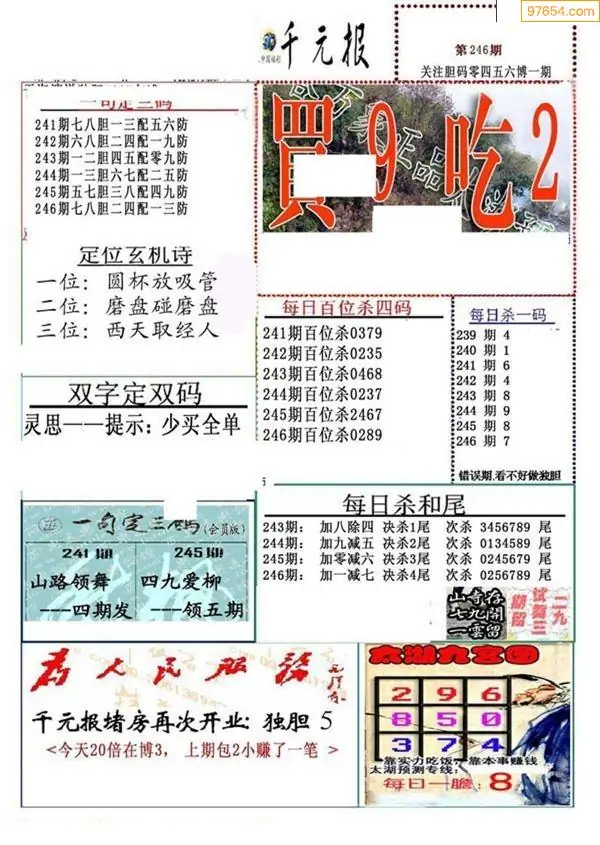 97654.com
千元报
第246期
关注胆码零四五六博一期
一句定三码
241期七八胆一三配五六防
242期六八胆二四配一九防
243期一二胆四五配零九防
244期一三胆六七配二五防
245期五七胆三八配四九防
246期七八胆二四配一三防
買9吃2
定位玄机诗
一位: 圆杯放吸管
二位: 磨盘碰磨盘
三位: 西天取经人
每日百位杀四码
241期百位杀0379
242期百位杀0235
243期百位杀0468
244期百位杀0237
245期百位杀2467
246期百位杀0289
每日杀一码
239 期 4
240 期 1
241 期 6
242 期 4
243 期 8
244 期 9
245 期 8
246 期 7
错误期,看不好做独胆
双字定双码
灵思——提示: 少买全单
一句定三码(会员版)
241期
245期
山路领舞
四九爱柳
---四期发
---领五期
每日杀和尾
243期: 加八除四 决杀1尾 次杀 3456789 尾
244期: 加九减五 决杀2尾 次杀 0134589 尾
245期: 加零减六 决杀3尾 次杀 0245679 尾
246期: 加一减七 决杀4尾 次杀 0256789 尾
七九開
一雲留
试舞三
二九
为人民服务
千元报堵房再次开业: 独胆 5
<今天20倍在博3, 上期包2小赚了一笔 >
太湖九宫图
2 9 6
8 5 0
3 7 4
靠实力吃饭,靠本事赚钱
太湖预测专线:
每日一胆: 8